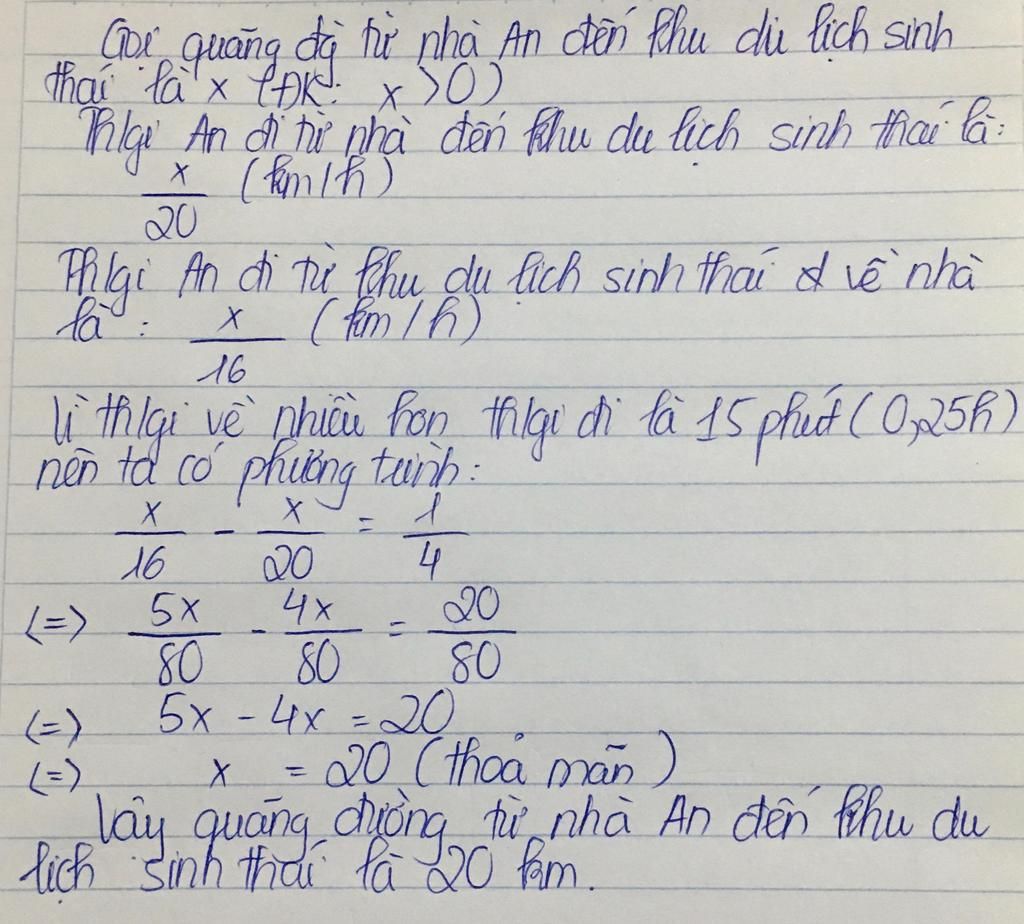 Gọi quãng đg từ nhà An đến khu du lịch sinh
thái là x (ĐK: x > 0)
Thlgi An đi từ nhà đến khu du lịch sinh thái là:
x/20 (km/h)
Thlgi An đi từ khu du lịch sinh thái về nhà
là: x/16 (km/h)
Vì thlgi về nhiều hơn thlgi đi là 15 phút (0,25h)
nên ta có phương trình:
x/16 - x/20 = 1/4
<=> 5x/80 - 4x/80 = 20/80
<=> 5x - 4x = 20
<=> x = 20 (thoả mãn)
Vậy quãng đường từ nhà An đến khu du
lịch sinh thái là 20 km.